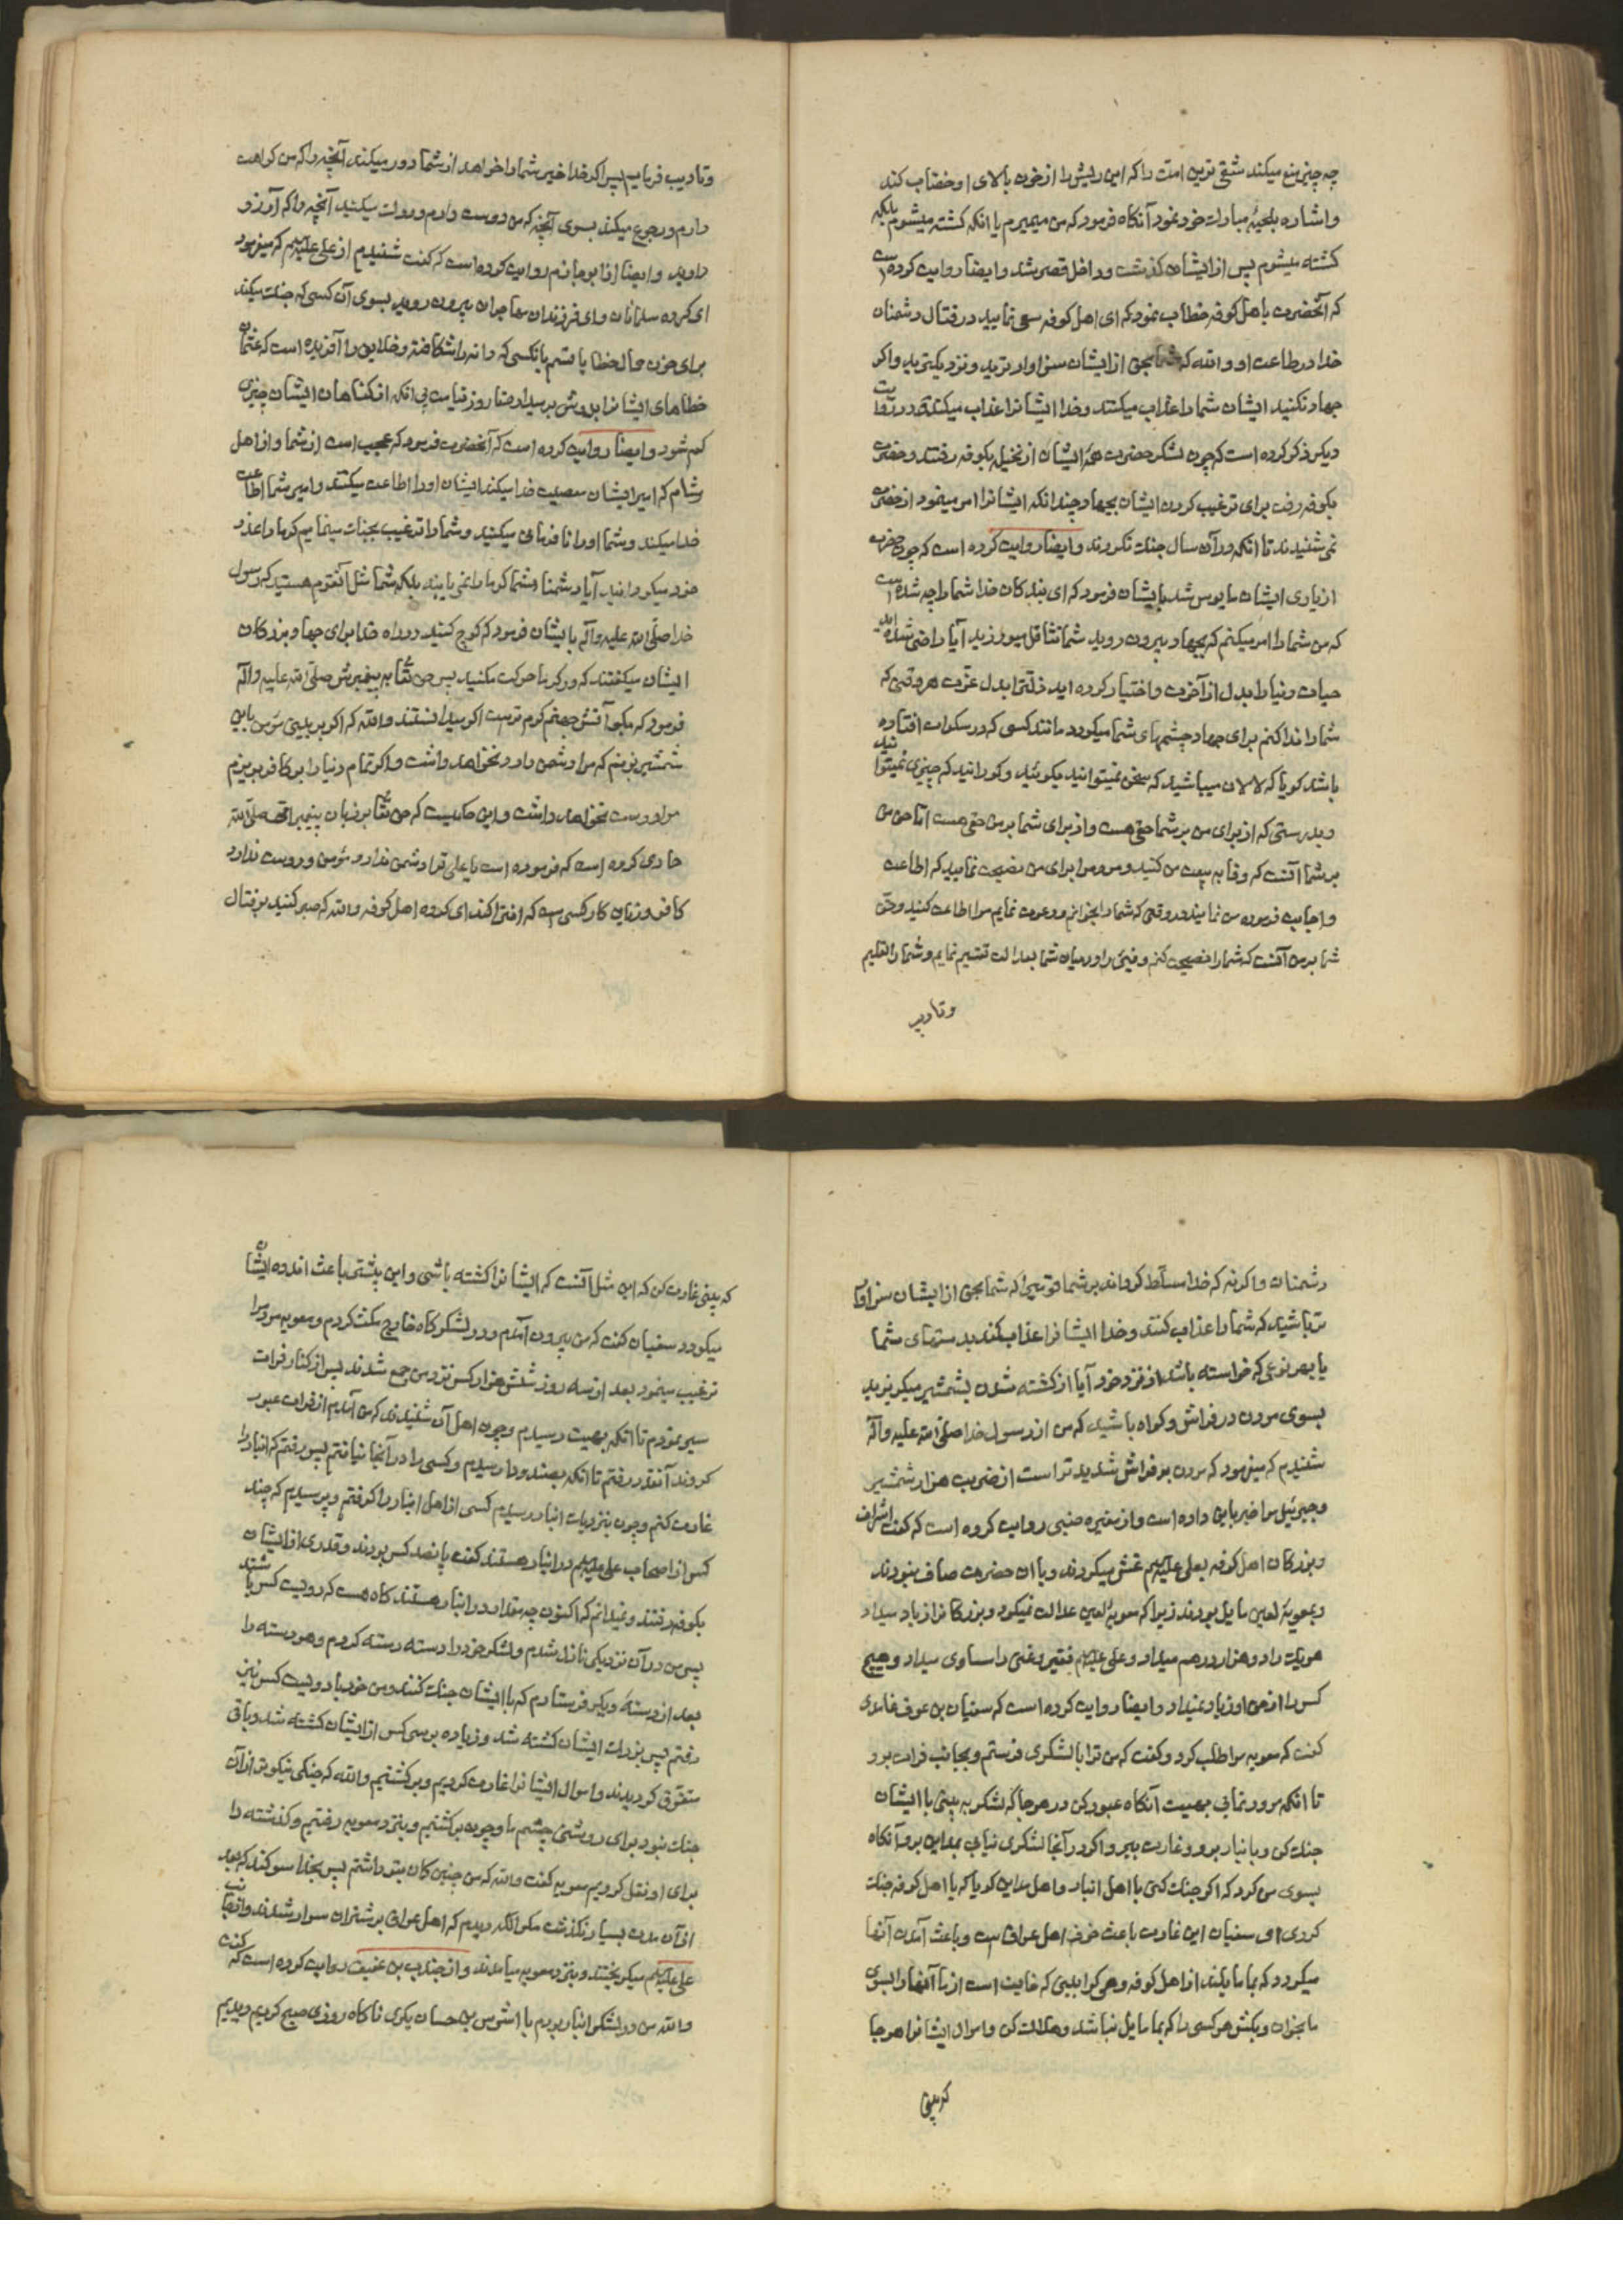 چه چیز منع میکند شقی ترین امت را که این ریش را از خون بالای او خضاب کند
و اشاره بلحیهٔ مبارک خود نمود آنکاه فرمود که من میمیرم یا انکه کشته میشوم بلکه
کشته میشوم پس از ایشان کذشت و داخل قصر شد و ایضا روایت کرده است
که آنحضرت باهل کوفه خطاب نمود که ای اهل کوفه سعی نمایید در قتال دشمنان
خدا در طاعت او والله که شما بحق از ایشان سزاوارترید و نزدیکترید و اکر
جهاد نکنید ایشان شما را عذاب میکنند و خدا ایشانرا عذاب میکند و در روایت
دیکر ذکر کرده است که چون لشکر حضرت همهٔ ایشان از نخیله بکوفه رفتند و حضرت
بکوفه رفت برای ترغیب کردن ایشان بجهاد چندانکه ایشانرا امر مینمود از حضرت
نمی شنیدند تا انکه در آن سال جنک نکردند و ایضا روایت کرده است که چون حضرت
از یاری ایشان مایوس شد بایشان فرمود که ای بندکان خدا شما را چه شده است
که من شما را امر میکنم که بجهاد بیرون روید شما تثاقل میورزید آیا راضی شده اید
حیات دنیا را بدل از آخرت و اختیار کرده اید ذلت را بدل عزت هر وقتی که
شما را ندا کنم برای جهاد چشمهای شما میکردد مانند کسی که در سکرات افتاده
باشد کویا که لالان میباشید که سخن نمیتوانید بکوئید و کورانید که چیزی نمیتوانید
و بدرستی که از برای من بر شما حقی هست و از برای شما بر من حقی هست اما حق من
بر شما آنست که وفا به بیعت من کنید و مردمرا برای من نصیحت نمایید که اطاعت
و اجابت فرموده من نمایند و در وقتی که شما را بخوانم و دعوت نمایم مرا اطاعت کنید و حق
شما بر من آنست که شما را نصیحت کنم و فیئ را در میان شما بعدالت تقسیم نمایم و شما را تعلیم
و تادیب
و تادیب فرمایم پس اکر خدا خیر شما را خواهد از شما دور میکند آنچه را که من کراهت
دارم و رجوع میکند بسوی آنچه که من دوست دارم و درک میکنید آنچه را که آرزو
دارید و ایضا از ابو حازم روایت کرده است که کفت شنیدم از علی علیه السلم که میفرمود
ای کروه مسلمانان و ای فرزندان مهاجران بیرون روید بسوی آن کسی که جنک میکند
برای خون حمال خطایا قسم بآنکسی که دانه را شکافته و خلایق را آفریده است که عثمان
خطاهای ایشانرا بدوش بر میدارد تا روز قیامت بی انکه از کناهان ایشان چیزی
کم شود و ایضا روایت کرده است که آنحضرت فرمود که عجب است از شما و از اهل
شام که امیر ایشان معصیت خدا میکند ایشان او را اطاعت میکنند و امیر شما اطاعت
خدا میکند و شما او را نافرمانی میکنید و شما را ترغیب بجنک مینمایم کرما را عذر
خود میکردانید آیا دشمنان شما کرما را نمی یابند بلکه شما مثل آنقوم هستید که رسول
خدا صلی الله علیه و آله بایشان فرمود که کوچ کنید در راه خدا برای جهاد بزرکان
ایشان میکفتند که در کرما حرکت مکنید پس حق تعالی به پیغمبرش صلی الله علیه و آله
فرمود که بکو آتش جهنم کرم ترست اکر میدانستند والله که اکر بر بینی مؤمن باین
شمشیر بزنم که مرا دشمن دارد نخواهد داشت و اکر تمام دنیا را بر کافر بریزم
مرا دوست نخواهد داشت و این حکمیست که حق تعالی بر زبان پیغمبر امی صلی الله
جاری کرده است که فرموده است یا علی ترا دشمن ندارد مؤمن و دوست ندارد
کافر و زیان کار کسی است که افترا کند ای کروه اهل کوفه والله که صبر کنید بر قتال
دشمنان و اکرنه که خدا مسلط کرداند بر شما قومیرا که شما بحق از ایشان سزاوار
تر باشید که شما را عذاب کنند و خدا ایشانرا عذاب کند بدستهای شما
یا بهر نوعی که خواسته باشد از نزد خود آیا از کشته شدن بشمشیر میکریزید
بسوی مردن در فراش و کواه باشید که من از رسول خدا صلی الله علیه و آله
شنیدم که میفرمود که مردن بر فراش شدید تر است از ضربت هزار شمشیر
و جبرئیل مرا خبر باین داده است و از مغیره ضبی روایت کرده است که کفت اشراف
و بزرکان اهل کوفه بعلی علیه السلم غش میکردند و با ان حضرت صاف نبودند
و بمعویهٔ لعین مایل بودند زیرا که معویهٔ لعین عدالت نمیکرد و بزرکانرا زیاد میداد
هر یک را دو هزار درهم میداد و علی علیه السلم فقیر و غنی را مساوی میداد و هیچ
کس را از حق او زیاد نمیداد و ایضا روایت کرده است که سفیان بن عوف غامدی
کفت که معویه مرا طلب کرد و کفت که من ترا با لشکری فرستم و بجانب فرات برو
تا انکه مرور نمایی بهیت آنکاه عبور کن در هر جا که لشکر به بینی با ایشان
جنک کن و بانبار برو و غارت ببر و اکر در آنجا لشکری نیابی بمداین برو آنکاه
بسوی من کرد که اکر جنک کنی با اهل انبار و اهل مداین کویا که با اهل کوفه جنک
کردی ای سفیان این غارت باعث خوف اهل عراق است و باعث آمدن آنها
میکردد که بما مایلند از اهل کوفه و هر که را ببینی که خایف است از ما آنها را بسوی
ما بخوان و بکش هر کسی را که بما مایل نباشد و هلاک کن و اموال ایشانرا هر جا
که ببینی
که ببینی غارت کن که این مثل آنست که ایشانرا کشته باشی و این بیشتر باعث اندوه ایشان
میکردد سفیان کفت که من بیرون آمدم و در لشکرکاه خارج مکث کردم و معویه مردمرا
ترغیب مینمود بعد از سه روز شش هزار کس نزد من جمع شدند پس از کنار فرات
سیر نمودم تا انکه بهیت رسیدم و چون اهل آن شنیدند که من آمدم از فرات عبور
کردند آنقدر رفتم تا انکه بصندودا رسیدم و کسی را در آنجا نیافتم پس رفتم که انبار را
غارت کنم و چون بنزدیک انبار رسیدم کسی از اهل انبار را کرفتم و پرسیدم که چند
کس از اصحاب علی علیه السلم در انبار هستند کفت پانصد کس بودند و قدری از ایشان
بکوفه رفتند و نمیدانم که اکنون چه مقدار در انبار هستند کاه هست که دویست کس باشند
پس من در آن نزدیکی نازل شدم و لشکر خود را دسته دسته کردم و هر دسته را
بعد از دستهٔ دیکر فرستادم که با ایشان جنک کنند و من خود با دویست کس نیز
رفتم پس بزرک ایشان کشته شد و زیاده بر سی کس از ایشان کشته شد و باقی
متفرق کردیدند و اموال ایشانرا غارت کردیم و برکشتیم والله که جنکی نیکوتر از آن
جنک نبود برای روشنی چشم ما و چون برکشتیم و بنزد معویه رفتیم و کذشته را
برای او نقل کردیم معویه کفت والله که من چنین کمان بتو داشتم پس بخدا سوکند که بعد
از آن مدت بسیار نکذشت مکر انکه دیدم که اهل عراق بر شتران سوار شدند و از جانب
علی علیه السلم میکریختند و بنزد معویه میامدند و از جندب بن عفیف روایت کرده است که کفت
والله من در لشکر انبار بودم با اشرس بن حسان بکری ناکاه روزی صبح کردیم دیدیم